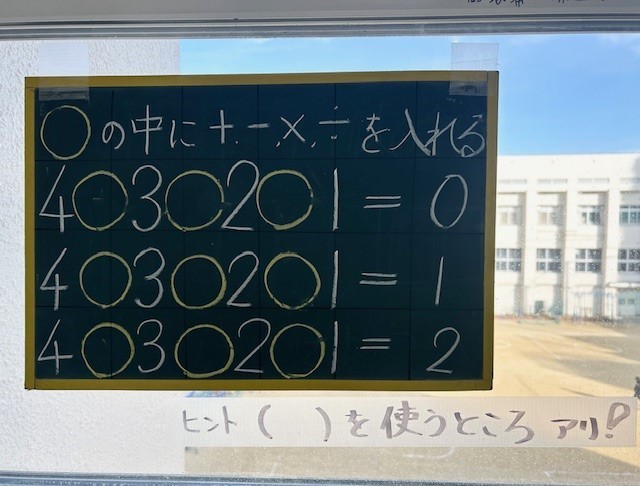 ○の中に+.-.×.÷を入れる
4○3○2○1=0
4○3○2○1=1
4○3○2○1=2
ヒント( )を使うところアリ!